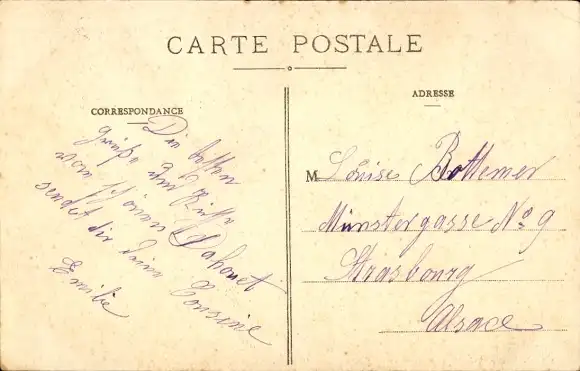 CARTE POSTALE
CORRESPONDANCE
Die besten
grüße und Küsse
vom schönen Dahouet
sendet dir deine Cousine
Emilie
ADRESSE
M Louise Bottemer
Münstergasse No 9
Strasbourg
Alsace